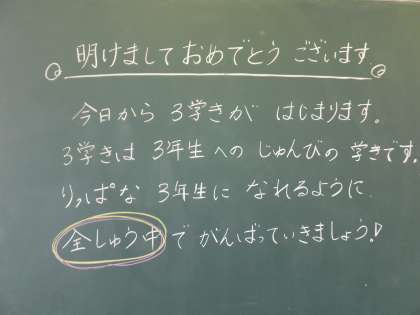 明けましておめでとう ございます
今日から 3学きが はじまります。
3学きは 3年生への じゅんびの 学きです。
りっぱな 3年生に なれるように
全しゅう中で がんばっていきましょう!